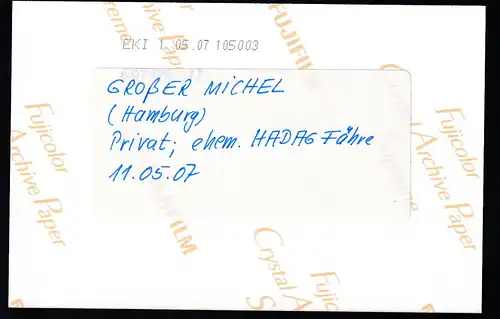 EKI 1 05.07 105003
GROßER MICHEL
(Hamburg)
Privat; ehem. HADAG Fähre
11.05.07
FUJIFILM
Fujicolor
Archive Paper
Fujicolor
Archive Paper
Crystal Archive
Fujicolor
Archive Paper